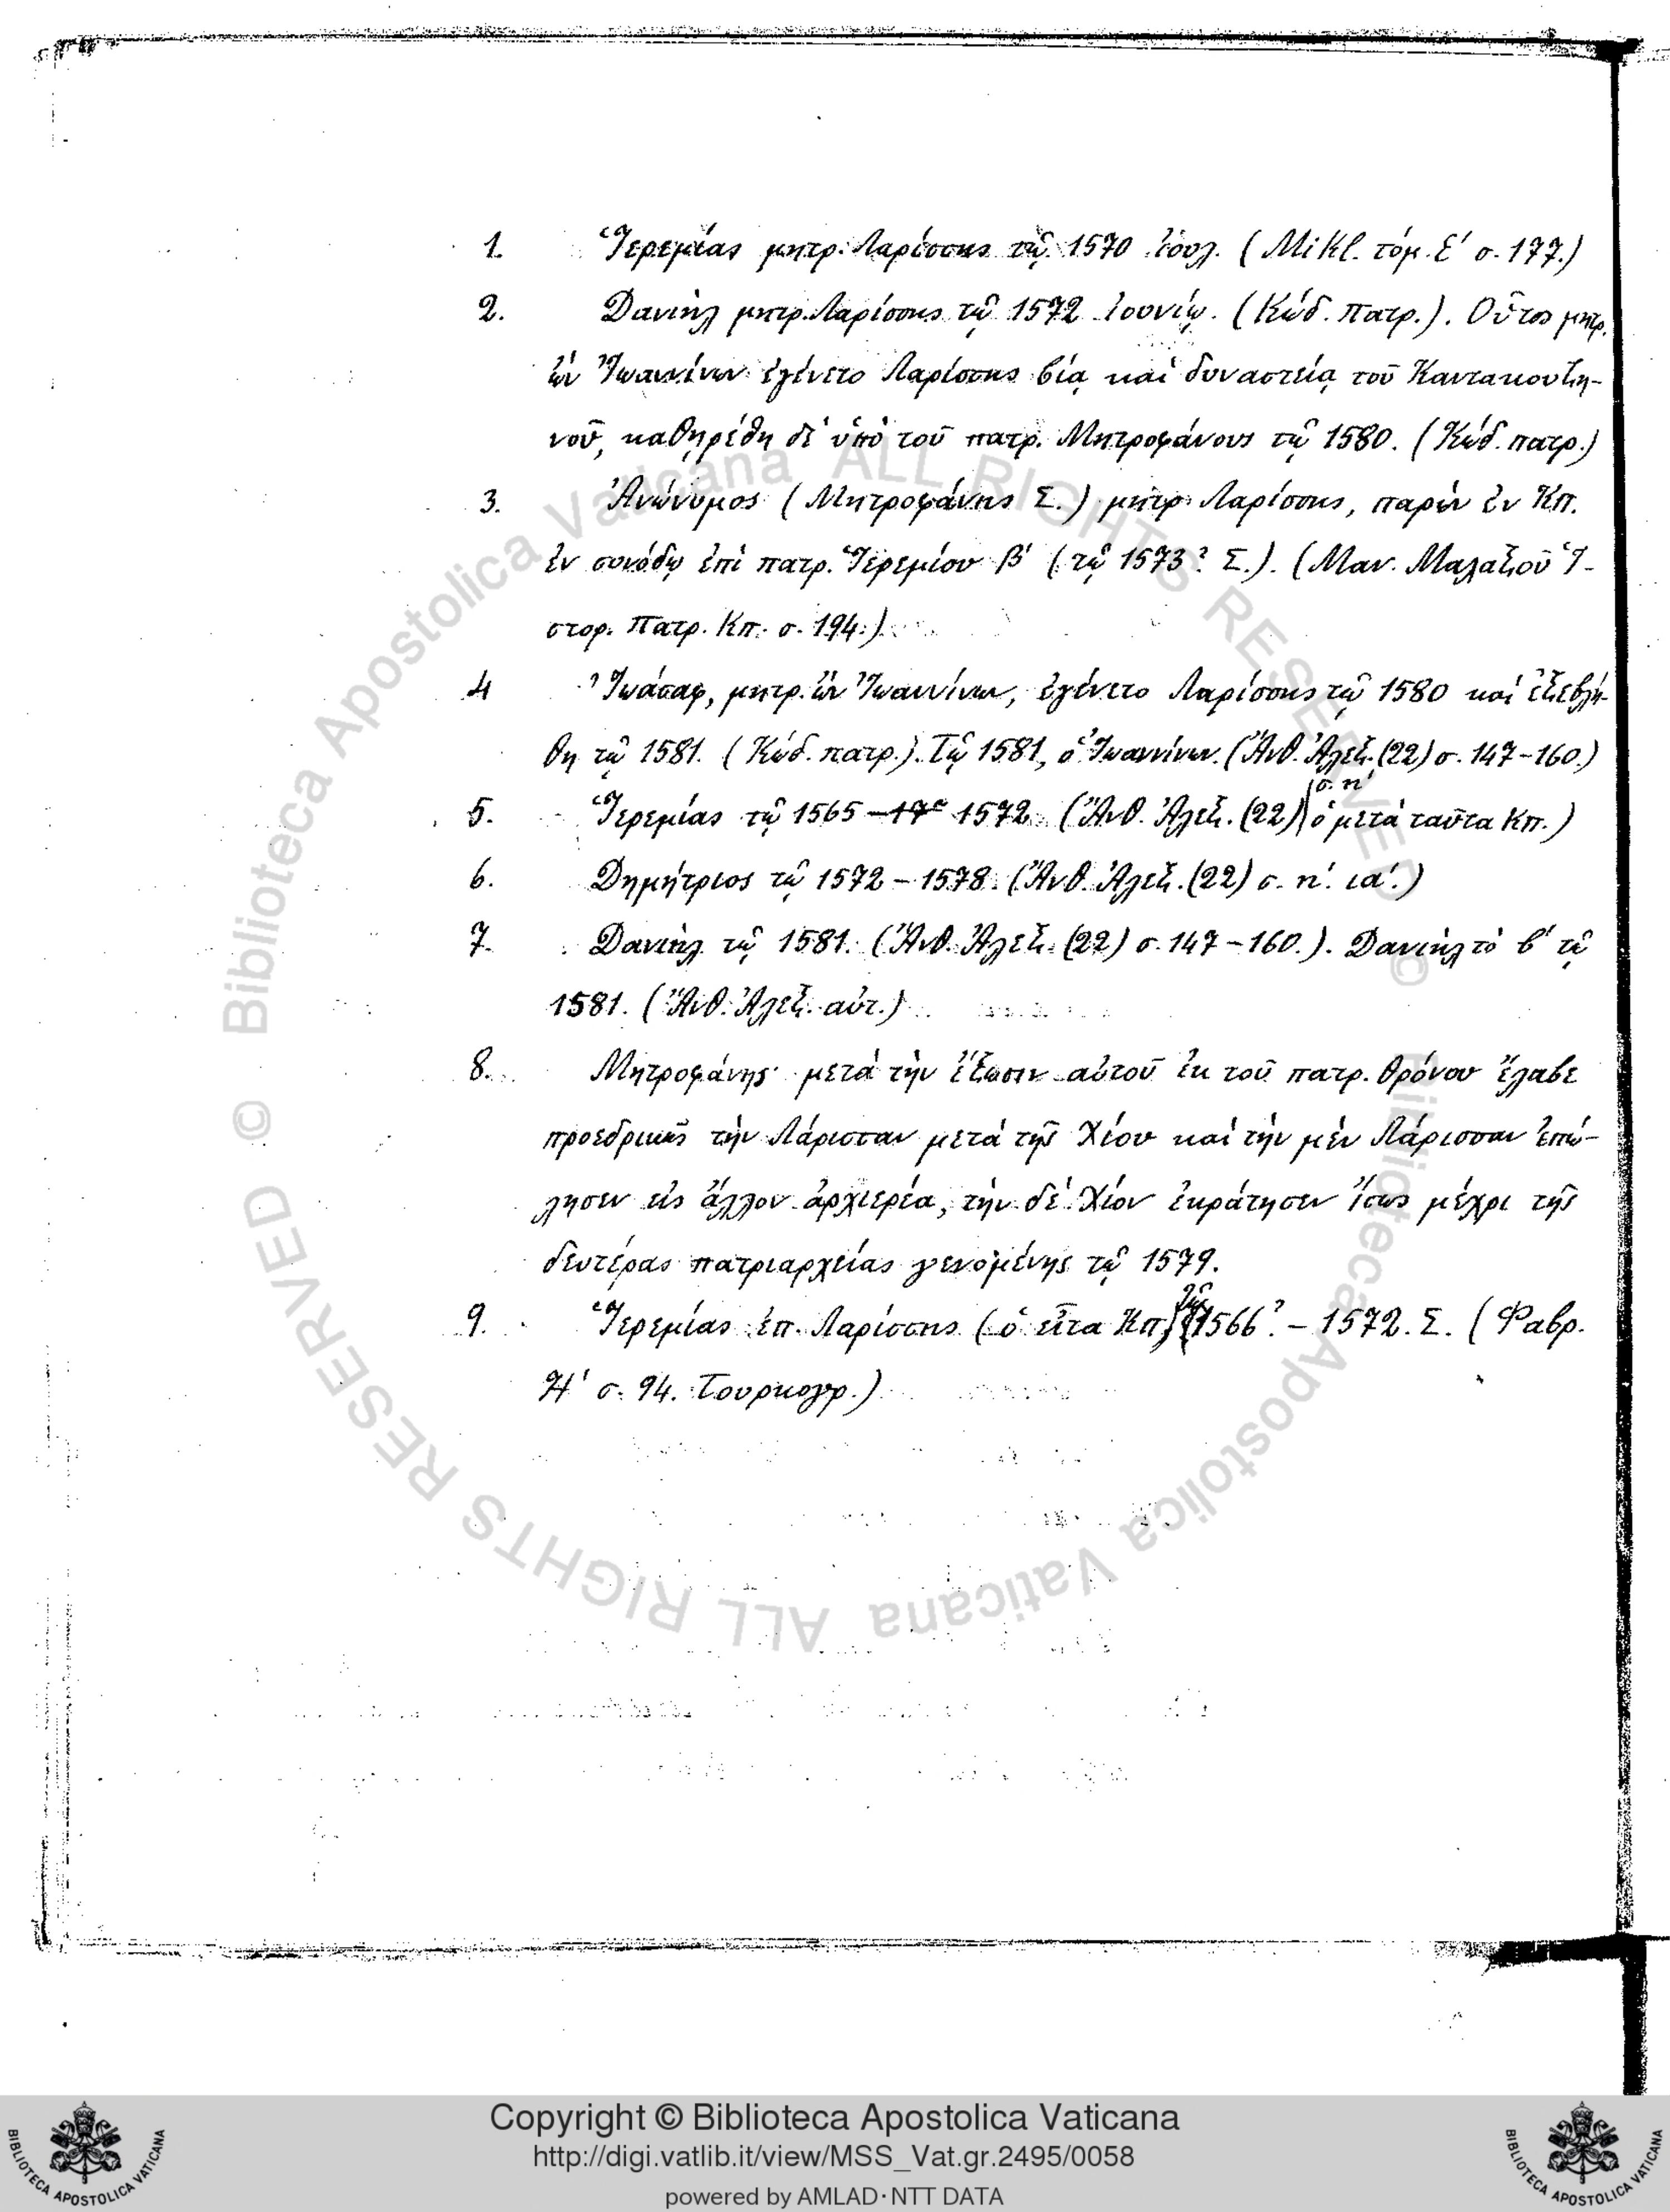 1. Ἱερεμίας μητρ. Λαρίσσης τῷ 1570 ἰουλ. (Mikl. τόμ. Ε΄ σ. 177.)
2. Δανιὴλ μητρ. Λαρίσσης τῷ 1572 ἰουνίῳ. (Κώδ. πατρ.). Οὗτος μητρ.
ὢν Ἰωαννίνων ἐγένετο Λαρίσσης βίᾳ καὶ δυναστείᾳ τοῦ Καντακουζη-
νοῦ, καθῃρέθη δὲ ὑπὸ τοῦ πατρ. Μητροφάνους τῷ 1580. (Κώδ. πατρ.)
3. Ἀνώνυμος (Μητροφάνης Σ.) μητρ. Λαρίσσης, παρὼν ἐν Κπ.
ἐν συνόδῳ ἐπὶ πατρ. Ἱερεμίου β΄ (τῷ 1573? Σ.). (Μαν. Μαλαξοῦ Ἱ-
στορ. Πατρ. Κπ. σ. 194.)
4 Ἰωάσαφ, μητρ. ὢν Ἰωαννίνων, ἐγένετο Λαρίσσης τῷ 1580 καὶ ἐξεβλή-
θη τῷ 1581. (Κώδ. πατρ.). Τῷ 1581, ὁ Ἰωαννίνων. (Ἄνθ. Ἀλεξ. (22) σ. 147-160.)
5. Ἱερεμίας τῷ 1565 – 1572. (Ἄνθ. Ἀλεξ. (22) σ. η΄ ὁ μετὰ ταῦτα Κπ.)
6. Δημήτριος τῷ 1572 – 1578. (Ἄνθ. Ἀλεξ. (22) σ. η΄. ια΄.)
7. Δανιὴλ τῷ 1581. (Ἄνθ. Ἀλεξ. (22) σ. 147-160.). Δανιὴλ τὸ β΄ τῷ
1581. (Ἄνθ. Ἀλεξ. αὐτ.)
8. Μητροφάνης μετὰ τὴν ἔξωσιν αὐτοῦ ἐκ τοῦ πατρ. θρόνου ἔλαβε
προεδρικῶς τὴν Λάρισσαν μετὰ τῆς Χίου καὶ τὴν μὲν Λάρισσαν ἐπώ-
λησεν εἰς ἄλλον ἀρχιερέα, τὴν δὲ Χίον ἐκράτησεν ἴσως μέχρι τῆς
δευτέρας πατριαρχείας γενομένης τῷ 1579.
9. Ἱερεμίας ἐπ. Λαρίσσης (ὁ εἶτα Κπ) τῷ 1566? – 1572. Σ. (Φαβρ.
Η΄ σ. 94. Τουρκογρ.)
© Biblioteca Apostolica Vaticana ALL RIGHTS RESERVED
© Biblioteca Apostolica Vaticana ALL RIGHTS RESERVED
Copyright © Biblioteca Apostolica Vaticana
http://digi.vatlib.it/view/MSS_Vat.gr.2495/0058
powered by AMLAD·NTT DATA
BIBLIOTECA APOSTOLICA VATICANA
BIBLIOTECA APOSTOLICA VATICANA